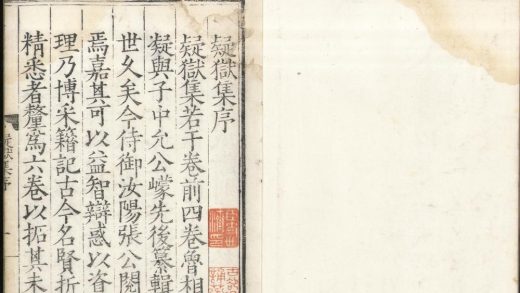 疑獄集序
疑獄集若干卷前四卷魯相
凝與子中允公㠓先後纂輯
世久矣今侍御汝陽張公閱
焉嘉其可以益智辯惑以資
理乃博采籍記古今名賢折
精悉者釐爲六卷以拓其未
疑獄集序